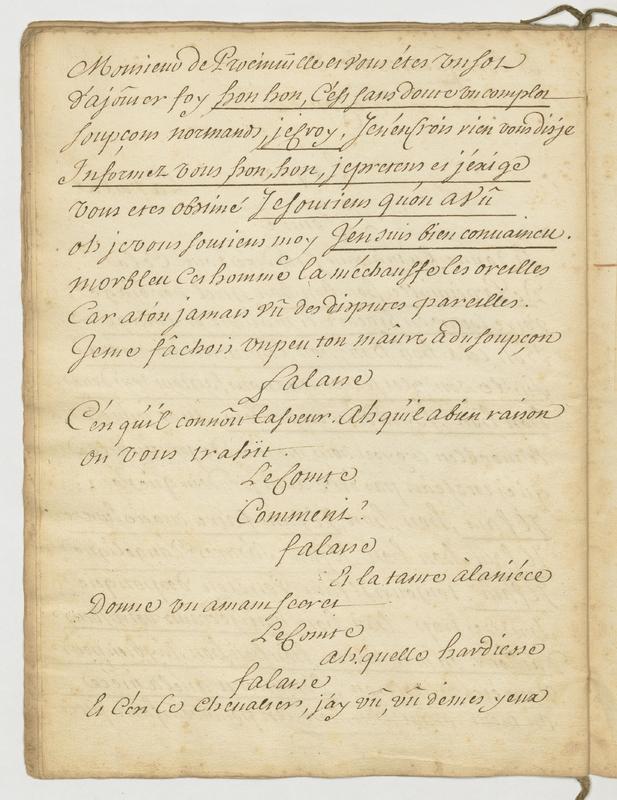 Monsieur de Procinville et vous étes un sot
d'ajoûter foy hon hon, C'est sans doute un complot
soupçons normands, je Croy, Jen'en Crois rien vous disje
Informez vous hon, hon, je pretens et j'éxige
vous etes obstiné Je soutiens qu'on a vû
oh je vous soutiens moy J'en suis bien convaincu.
morbleu Cet homme la m'échauffe les oreilles
Car aton jamais vû des disputes pareilles.
Je me fâchois un peu ton maître a du soupçon
falaise
C'en qu'il connoît la soeur. Ah qu'il a bien raison
on vous trahit.
Le Comte
Comment?
falaise
Et la tante à la niéce
Donne un amant secret
Le Comte
Ah! quelle hardiesse
falaise
Et C'en le Chevalier, j'ay vû, vû de mes yeux